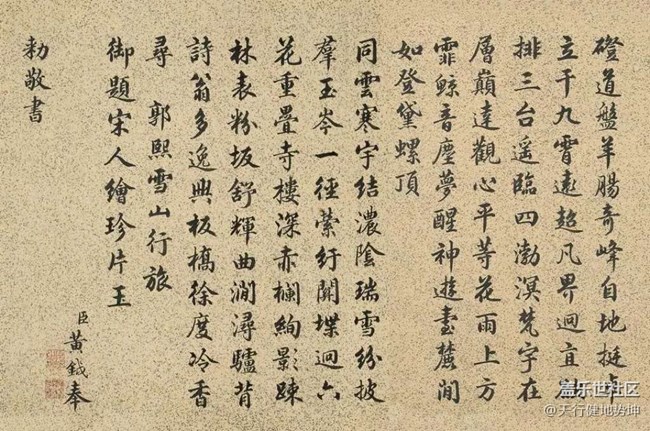 磴道盤羊腸奇峰自地挺卓
立干九霄遠超凡界迥宜
排三台遥臨四渤溟梵宇在
層巔達觀心平等花雨上方
霏鯨音塵夢醒神遊壺麓間
如登黛螺頂
同雲寒宇結濃陰瑞雪紛披
羣玉岑一徑縈紆開堞迥六
花重疊寺樓深赤欄絢影踈
林表粉坂舒輝曲澗潯驢背
詩翁多逸興板橋徐度冷香
尋 郭熙雪山行旅
御題宋人繪珍片玉
臣黃鉞奉
勑敬書
盖乐世社区
@天行健地势坤